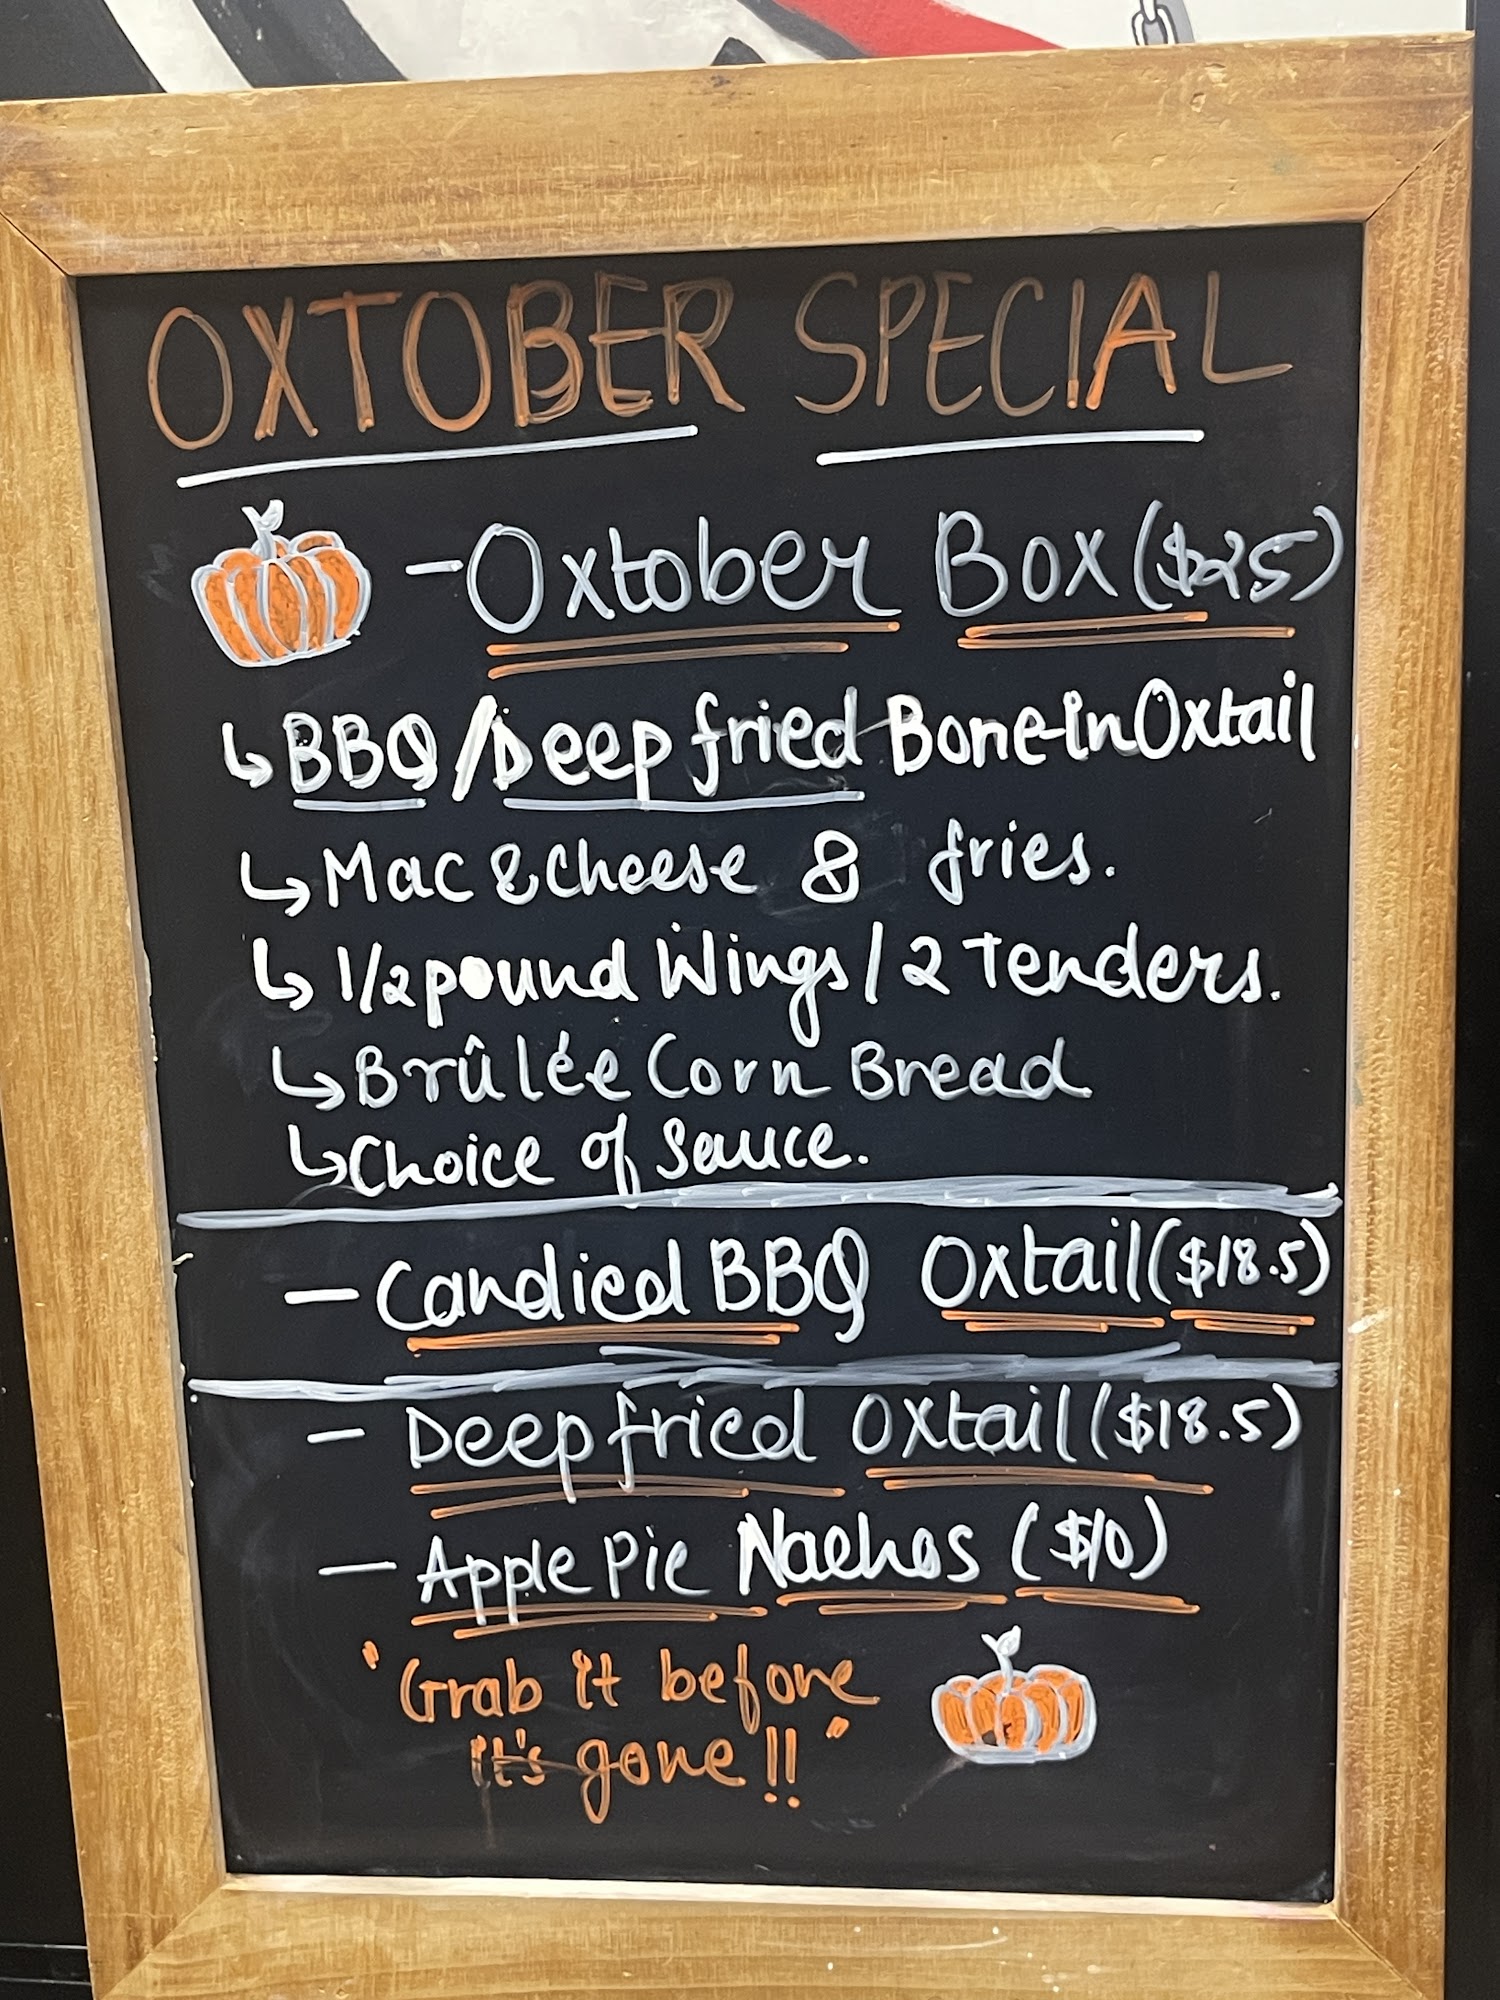 OXTOBER SPECIAL
- Oxtober Box ($25)
↳ BBQ / Deep fried Bone-in Oxtail
↳ Mac & Cheese & fries.
↳ 1/2 pound Wings / 2 Tenders.
↳ Brûlée Corn Bread
↳ Choice of Sauce.
- Candied BBQ Oxtail ($18.5)
- Deep fried Oxtail ($18.5)
- Apple Pie Nachos ($10)
"Grab it before
it's gone!!"